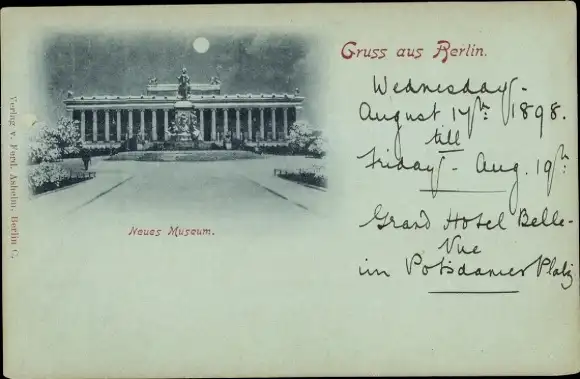 Gruss aus Berlin.
Wednesday -
August 17th 1898.
till
Friday - Aug. 19th
Grand Hotel Belle-
Vue
im Potsdamer Platz
Neues Museum.
Verlag v. Ferd. Ashelm, Berlin C.